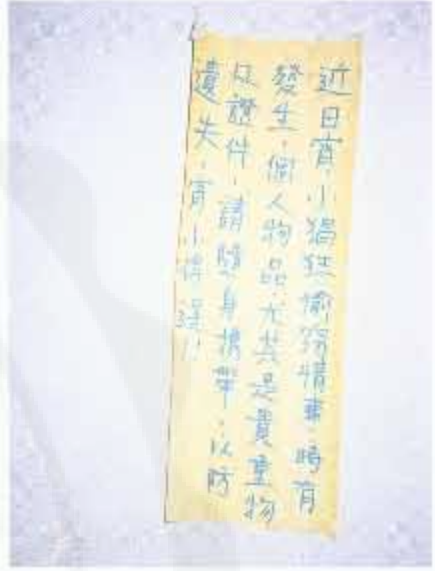 近日宵小猖狂偷竊情事,時有
發生,個人物品,尤其是貴重物
品證件,請隨身攜帶,以防
遺失,宵小得逞!!